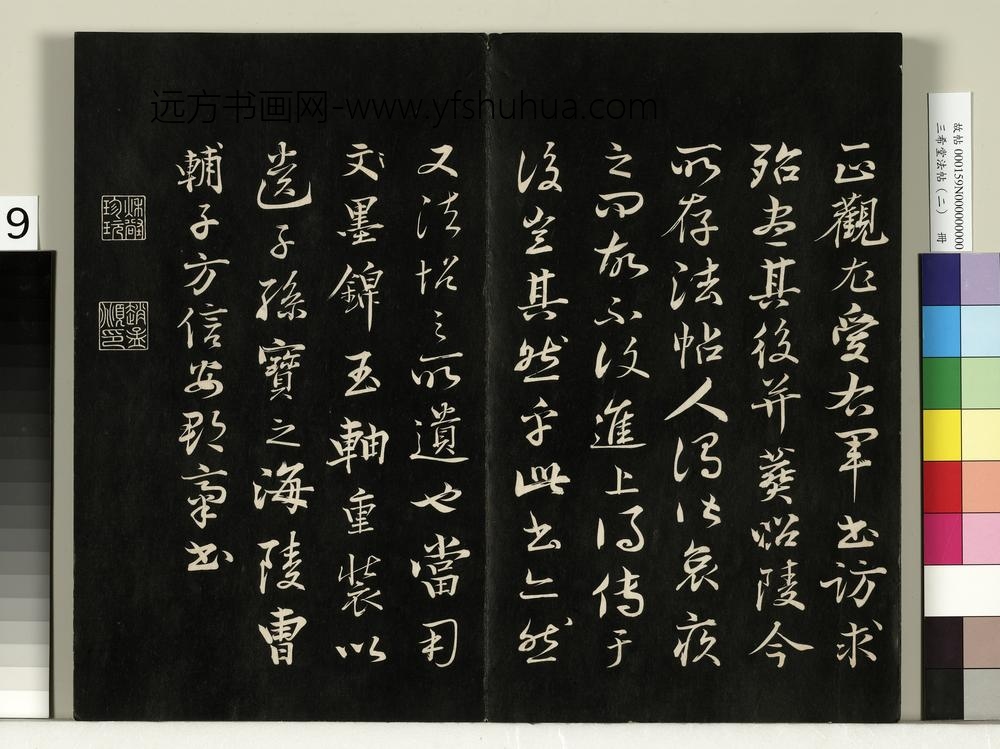 正觀尤愛右軍書訪求
殆盡其後并葬昭陵今
所存法帖人得於哀疾
之間故不復進上得傳于
後豈其然乎此書亦然
又法帖之所遺也當用
文墨錦玉軸重裝以
遺子孫寶之海陵曹
輔子方信安郡齋書
趙孟頫印
远方书画网-www.yfshuhua.com
故帖 000159N00000000
三希堂法帖(二) 冊
9